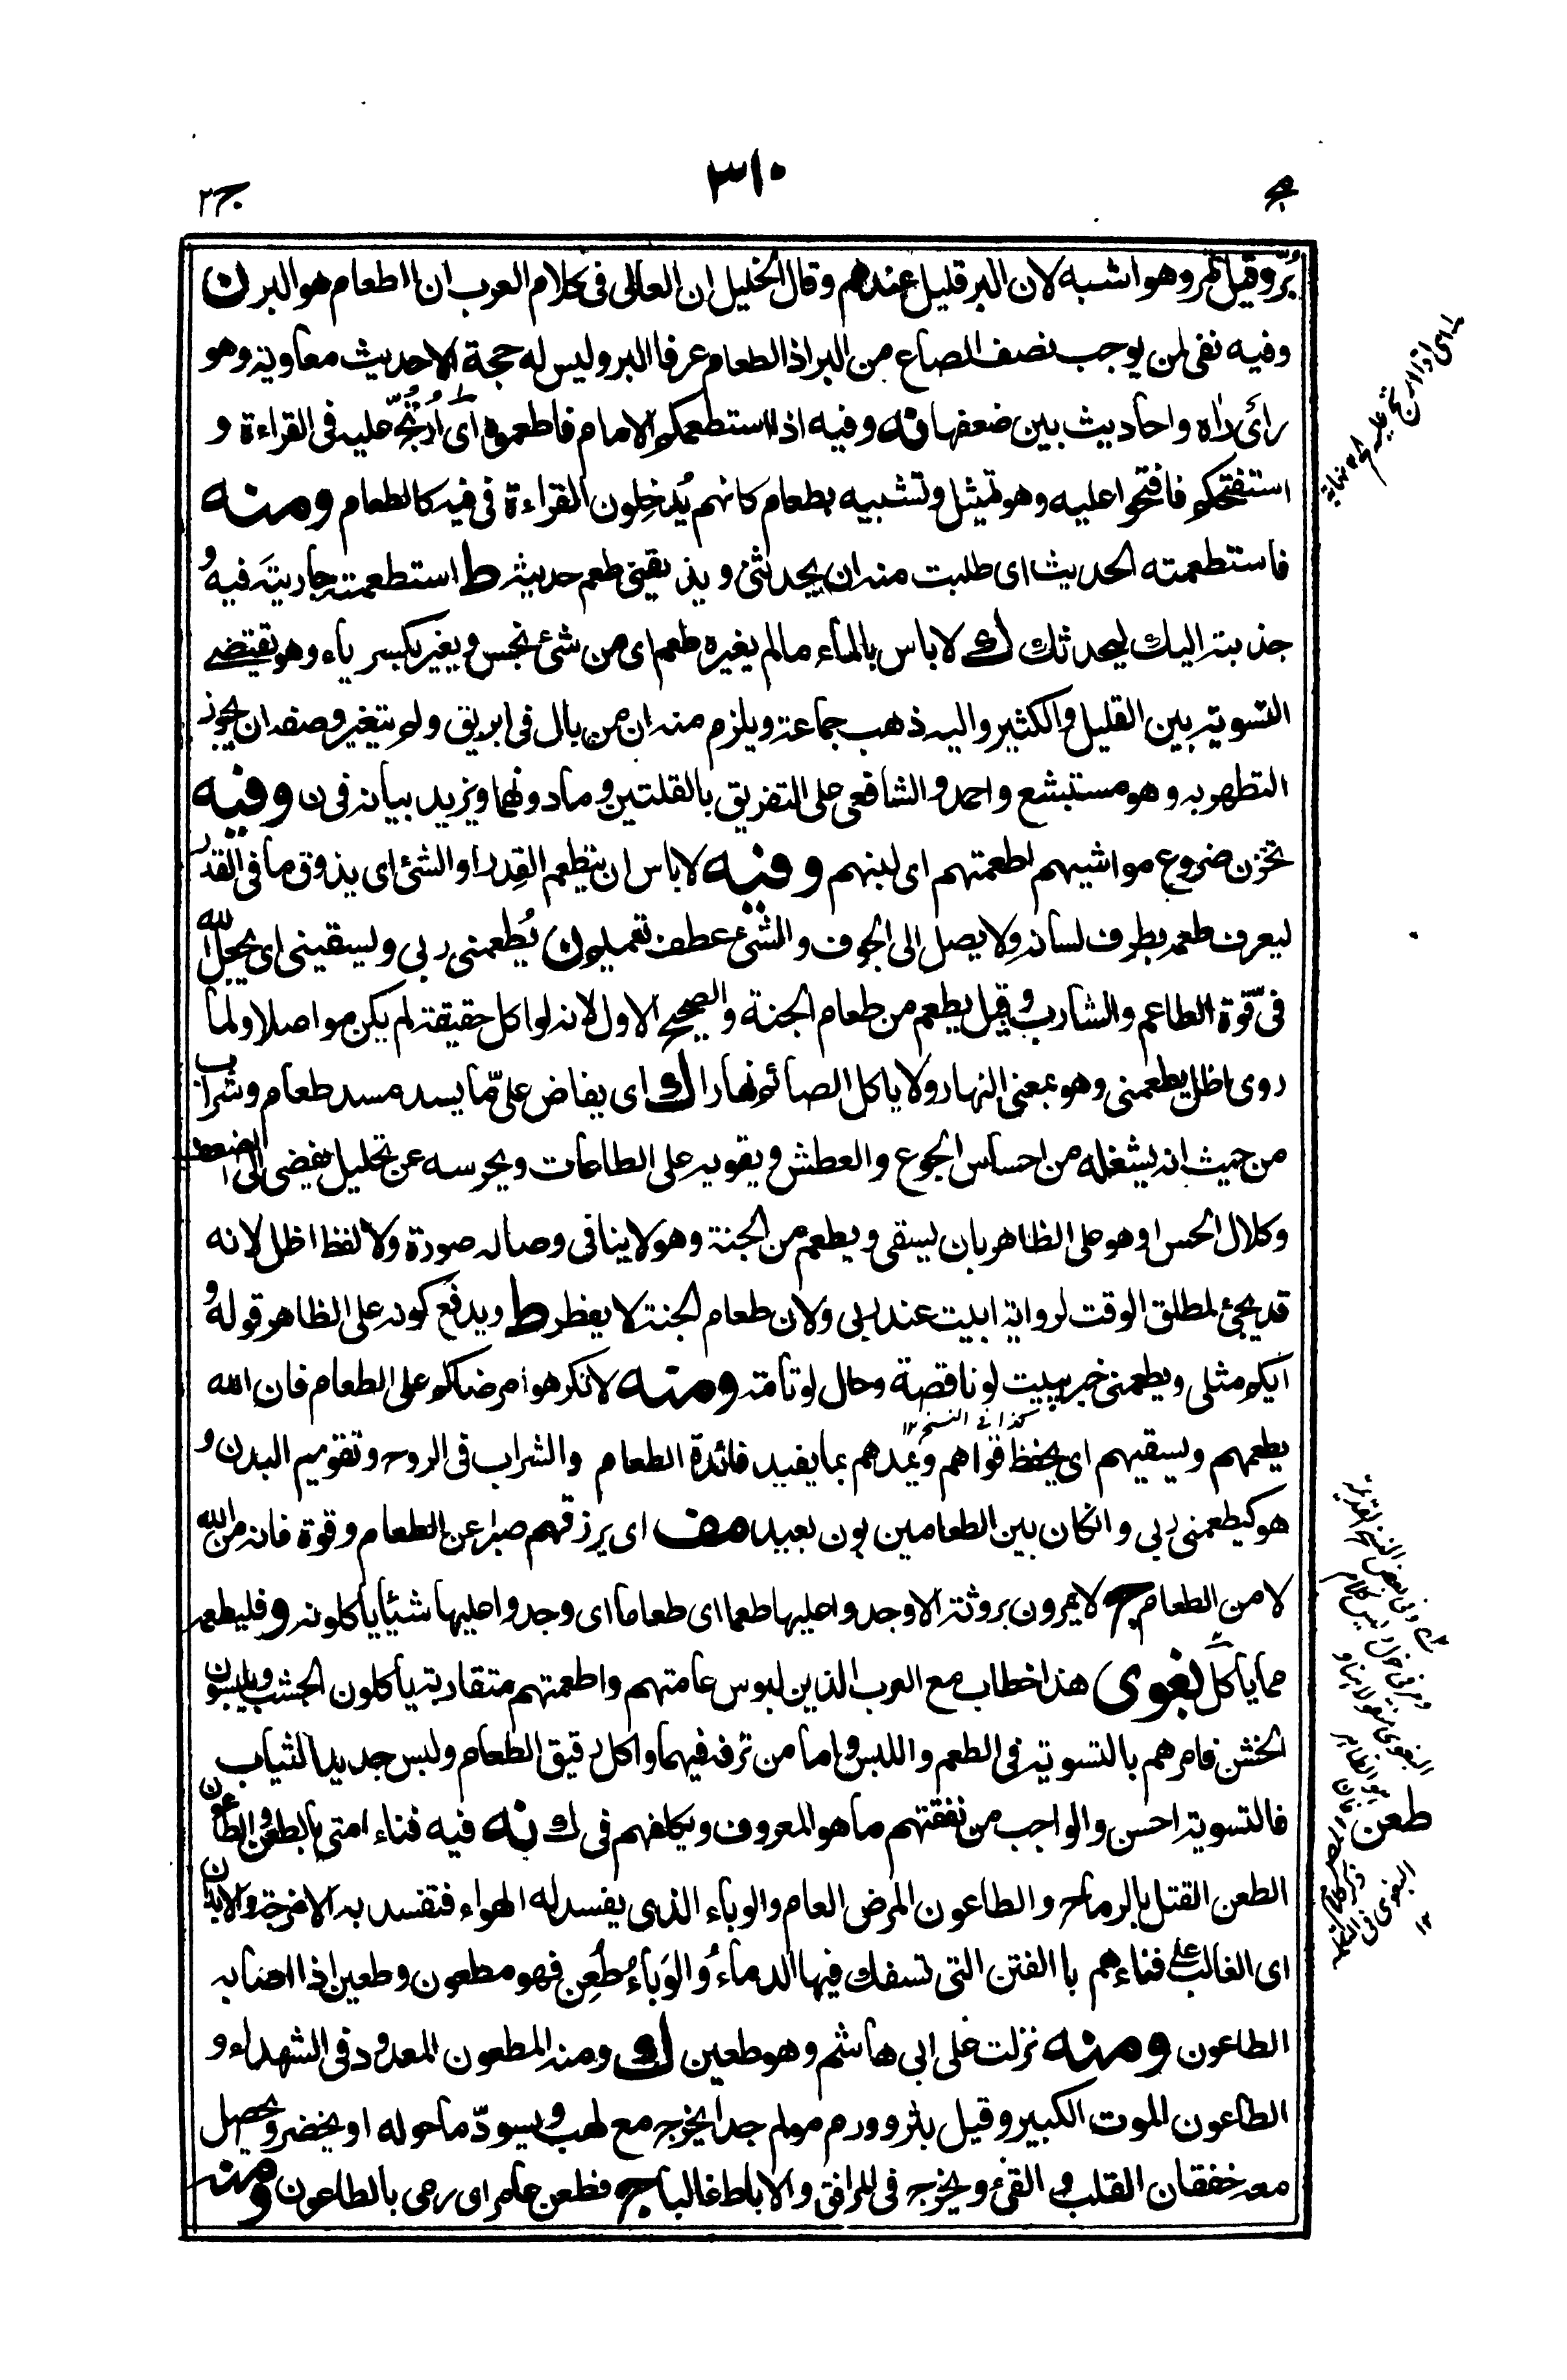 ٣١٠
ج٢
بُرّ وقيل تمر وهو اشبه لان البر قليل عندهم وقال الخليل ان العالى فى كلام العرب ان الطعام هو البر ن
وفيه نفى لمن يوجب نصف الصاع من البر اذ الطعام عرفا البر وليس له حجة الا حديث معاوية وهو
رأى رٰاه واحاديث بين ضعفها نه وفيه اذا استطعمكم الامام فاطعموه اى اُرْتُجّ عليه فى القراءة و
استفتحكم فافتحوا عليه وهو تمثيل وتشبيه بطعام كانهم يُدخِلون القراءة فى فيه كالطعام ومنه
فاستطعمته الحديث اى طلبت منه ان يحدثنى ويذيقنى طعم حديثه ط استطعمته جاريتَه فيهُ
جذبته اليك ليحدثك ك لا باس بالماء مالم يغيره طعم اى من شئ نجس ويغير بكسر ياء وهو يقتضے
التسوية بين القليل والكثير واليه ذهب جماعة ويلزم منه ان من بال فى ابريق ولم يتغير وصفه ان يجوز
التطهر به وهو مستبشع واحمد والشافعى على التفريق بالقلتين وما دونهما ويزيد بيانه فى ن وفيه
تخزن ضروع مواشيهم اطعمتهم اى لبنهم وفيه لا باس ان يتطعم القِدر او الشئ اى يذوق ما فى القدر
ليعرف طعمه بطرف لسانه ولا يصل الى الجوف والشئ عطف تعميم ن يُطعمنى ربى ويسقينى اى يجعل الله
فىّ قوة الطاعم والشارب وقيل يطعم من طعام الجنة والصحيح الاول لانه لو اكل حقيقة لم يكن مواصلا ولما
روى اظل يطعمنى وهو بمعنى النهار ولا ياكل الصائم نهارا ك اى يفاض علىّ ما يسد مسد طعام وشراب
من حيث انه يشغله من احساس الجوع والعطش ويقويه على الطاعات ويحرسه عن تحليل يفضى الى الضعف
وكلال الحس او هو على الظاهر بان يسقى ويطعم من الجنة وهو لا ينافى وصاله صورة ولا لفظ اظل لانه
قد يجئ لمطلق الوقت لرواية ابيت عند ربى ولان طعام الجنة لا يفطر ط ويدفع كونه على الظاهر قولهُ
ايكم مثلى ويطعمنى خبر يبيت لو ناقصة وحال لو تامة ومنه لا تكرهوا مرضاكم على الطعام فان الله
كذا فى النسخ ١٢
يطعمهم ويسقيهم اى يحفظ قواهم ويمدهم بما يفيد فائدة الطعام والشراب فى الروح وتقويم البدن و
هو كيطعمنى ربى وانكان بين الطعامين بون بعيد مف اى يرزقهم صبرا عن الطعام وقوة فانه من الله
لا من الطعام ج لا يمرون بروثة الا وجدوا عليها طعما اى طعاما اى وجدوا عليها شيئا ياكلونه و فليطعمه
مما ياكل بغوى هذا خطاب مع العرب الذين لبوس عامتهم واطعمتهم متقاربة ياكلون الجشب ويلبسون
الخشن فامرهم بالتسوية فى الطعم واللبس واما من ترفه فيهما واكل رقيق الطعام ولبس جديد الثياب
فالتسوية احسن والواجب من نفقتهم ما هو المعروف ويكلفهم فى ك نه فيه فناء امتى بالطعن والطاعون
طعن
الطعن القتل بالرماح والطاعون المرض العام والوباء الذى يفسد له الهواء فتفسد به الامزجة والابدان
اى الغالب على فناءهم با الفتن التى تسفك فيها الدماءُ والوَباءُ طُعِن فهو مطعون وطعين اذا اصابه
الطاعون ومنه نزلت على ابى هاشم وهو طعين ك ومنه المطعون المعدود فى الشهداء و
الطاعون الموت الكبير وقيل بثر وورم مولم جدا يخرج مع لهب ويسودّ ما حوله او يخضر ويحصل
معه خفقان القلب والقئ ويخرج فى المرافق والاباط غالبا ج فطعن عامر اى رمى بالطاعون ومنه